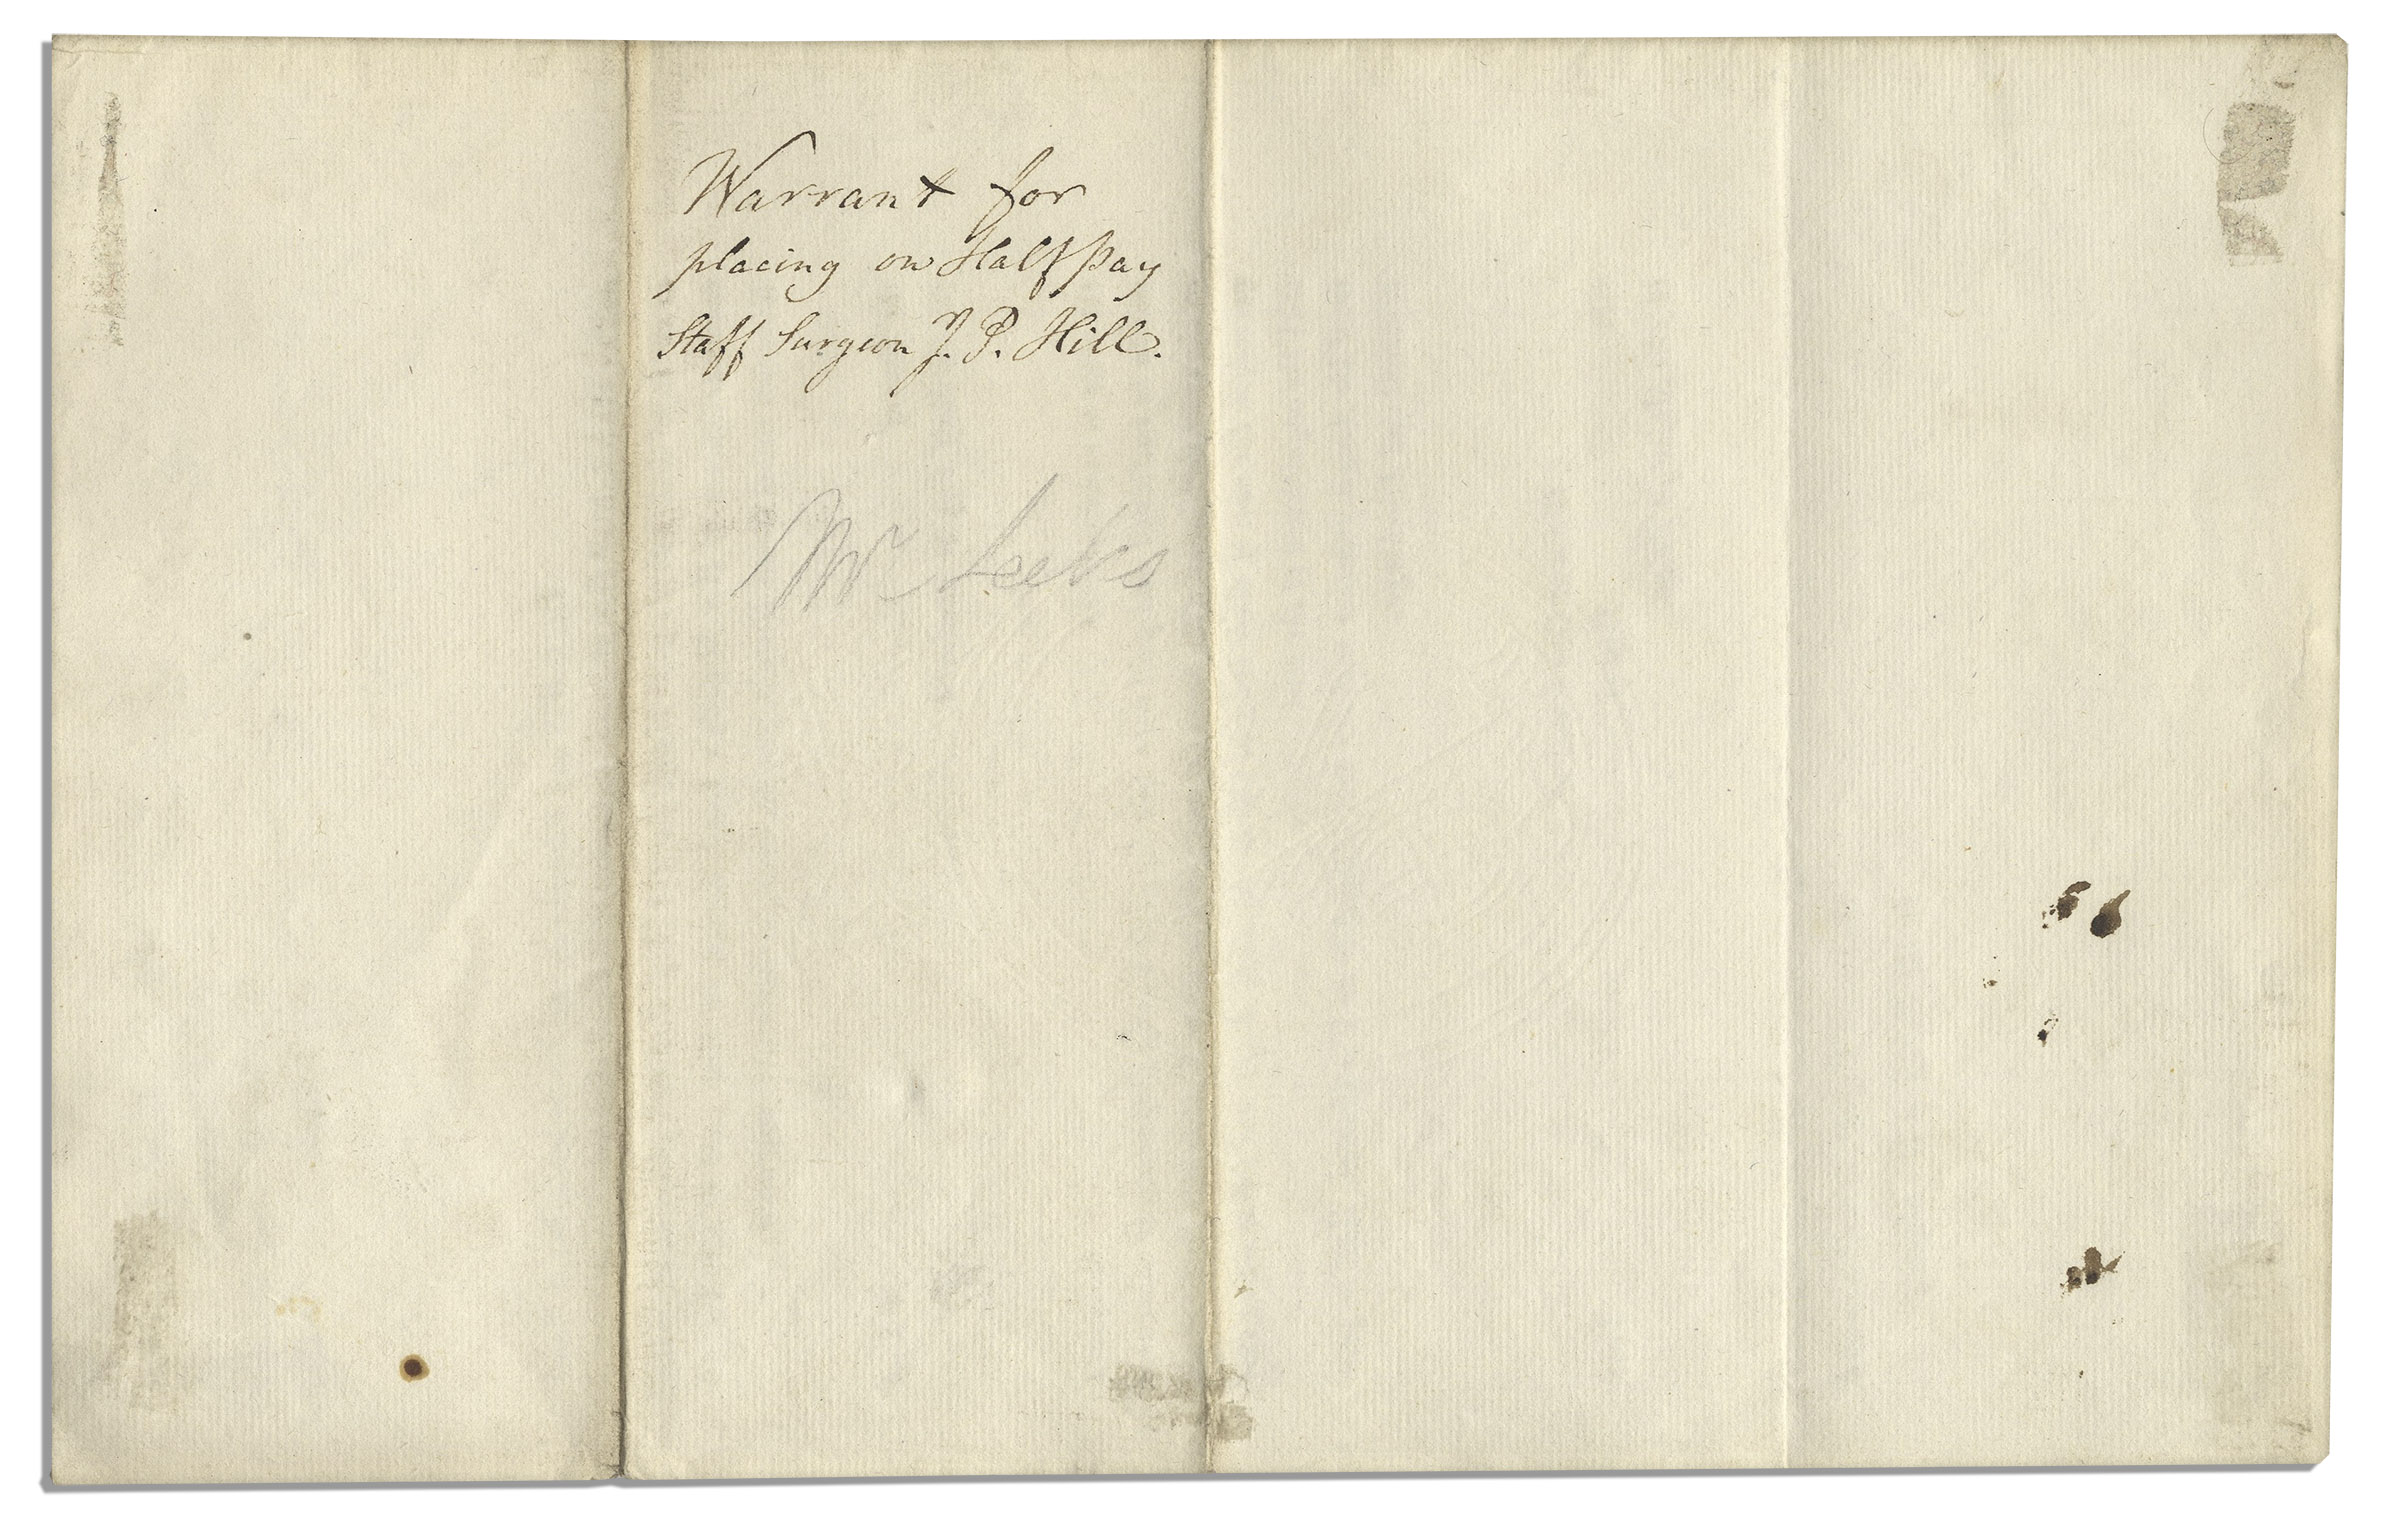 Warrant for
placing on Half pay
Staff Surgeon J. P. Hill.
Mr